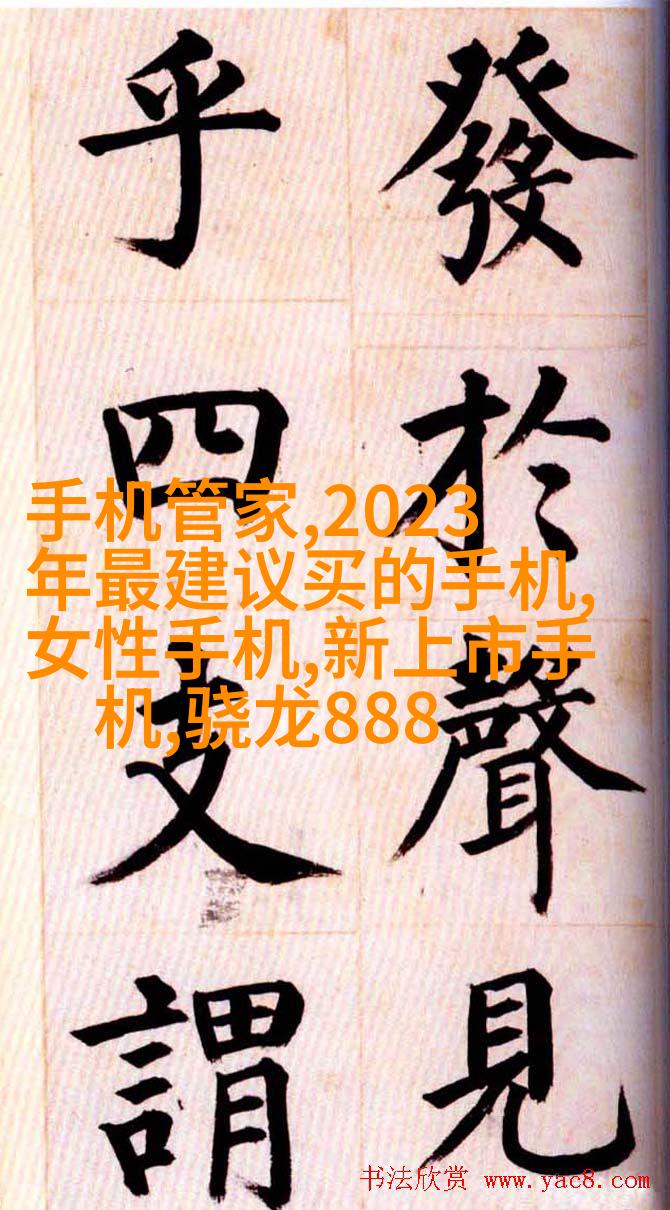 發於聲見
乎四支謂
手机管家,2023
年最建议买的手机,
女性手机,新上市手
机,骁龙888
书法欣赏 www.yac8.com